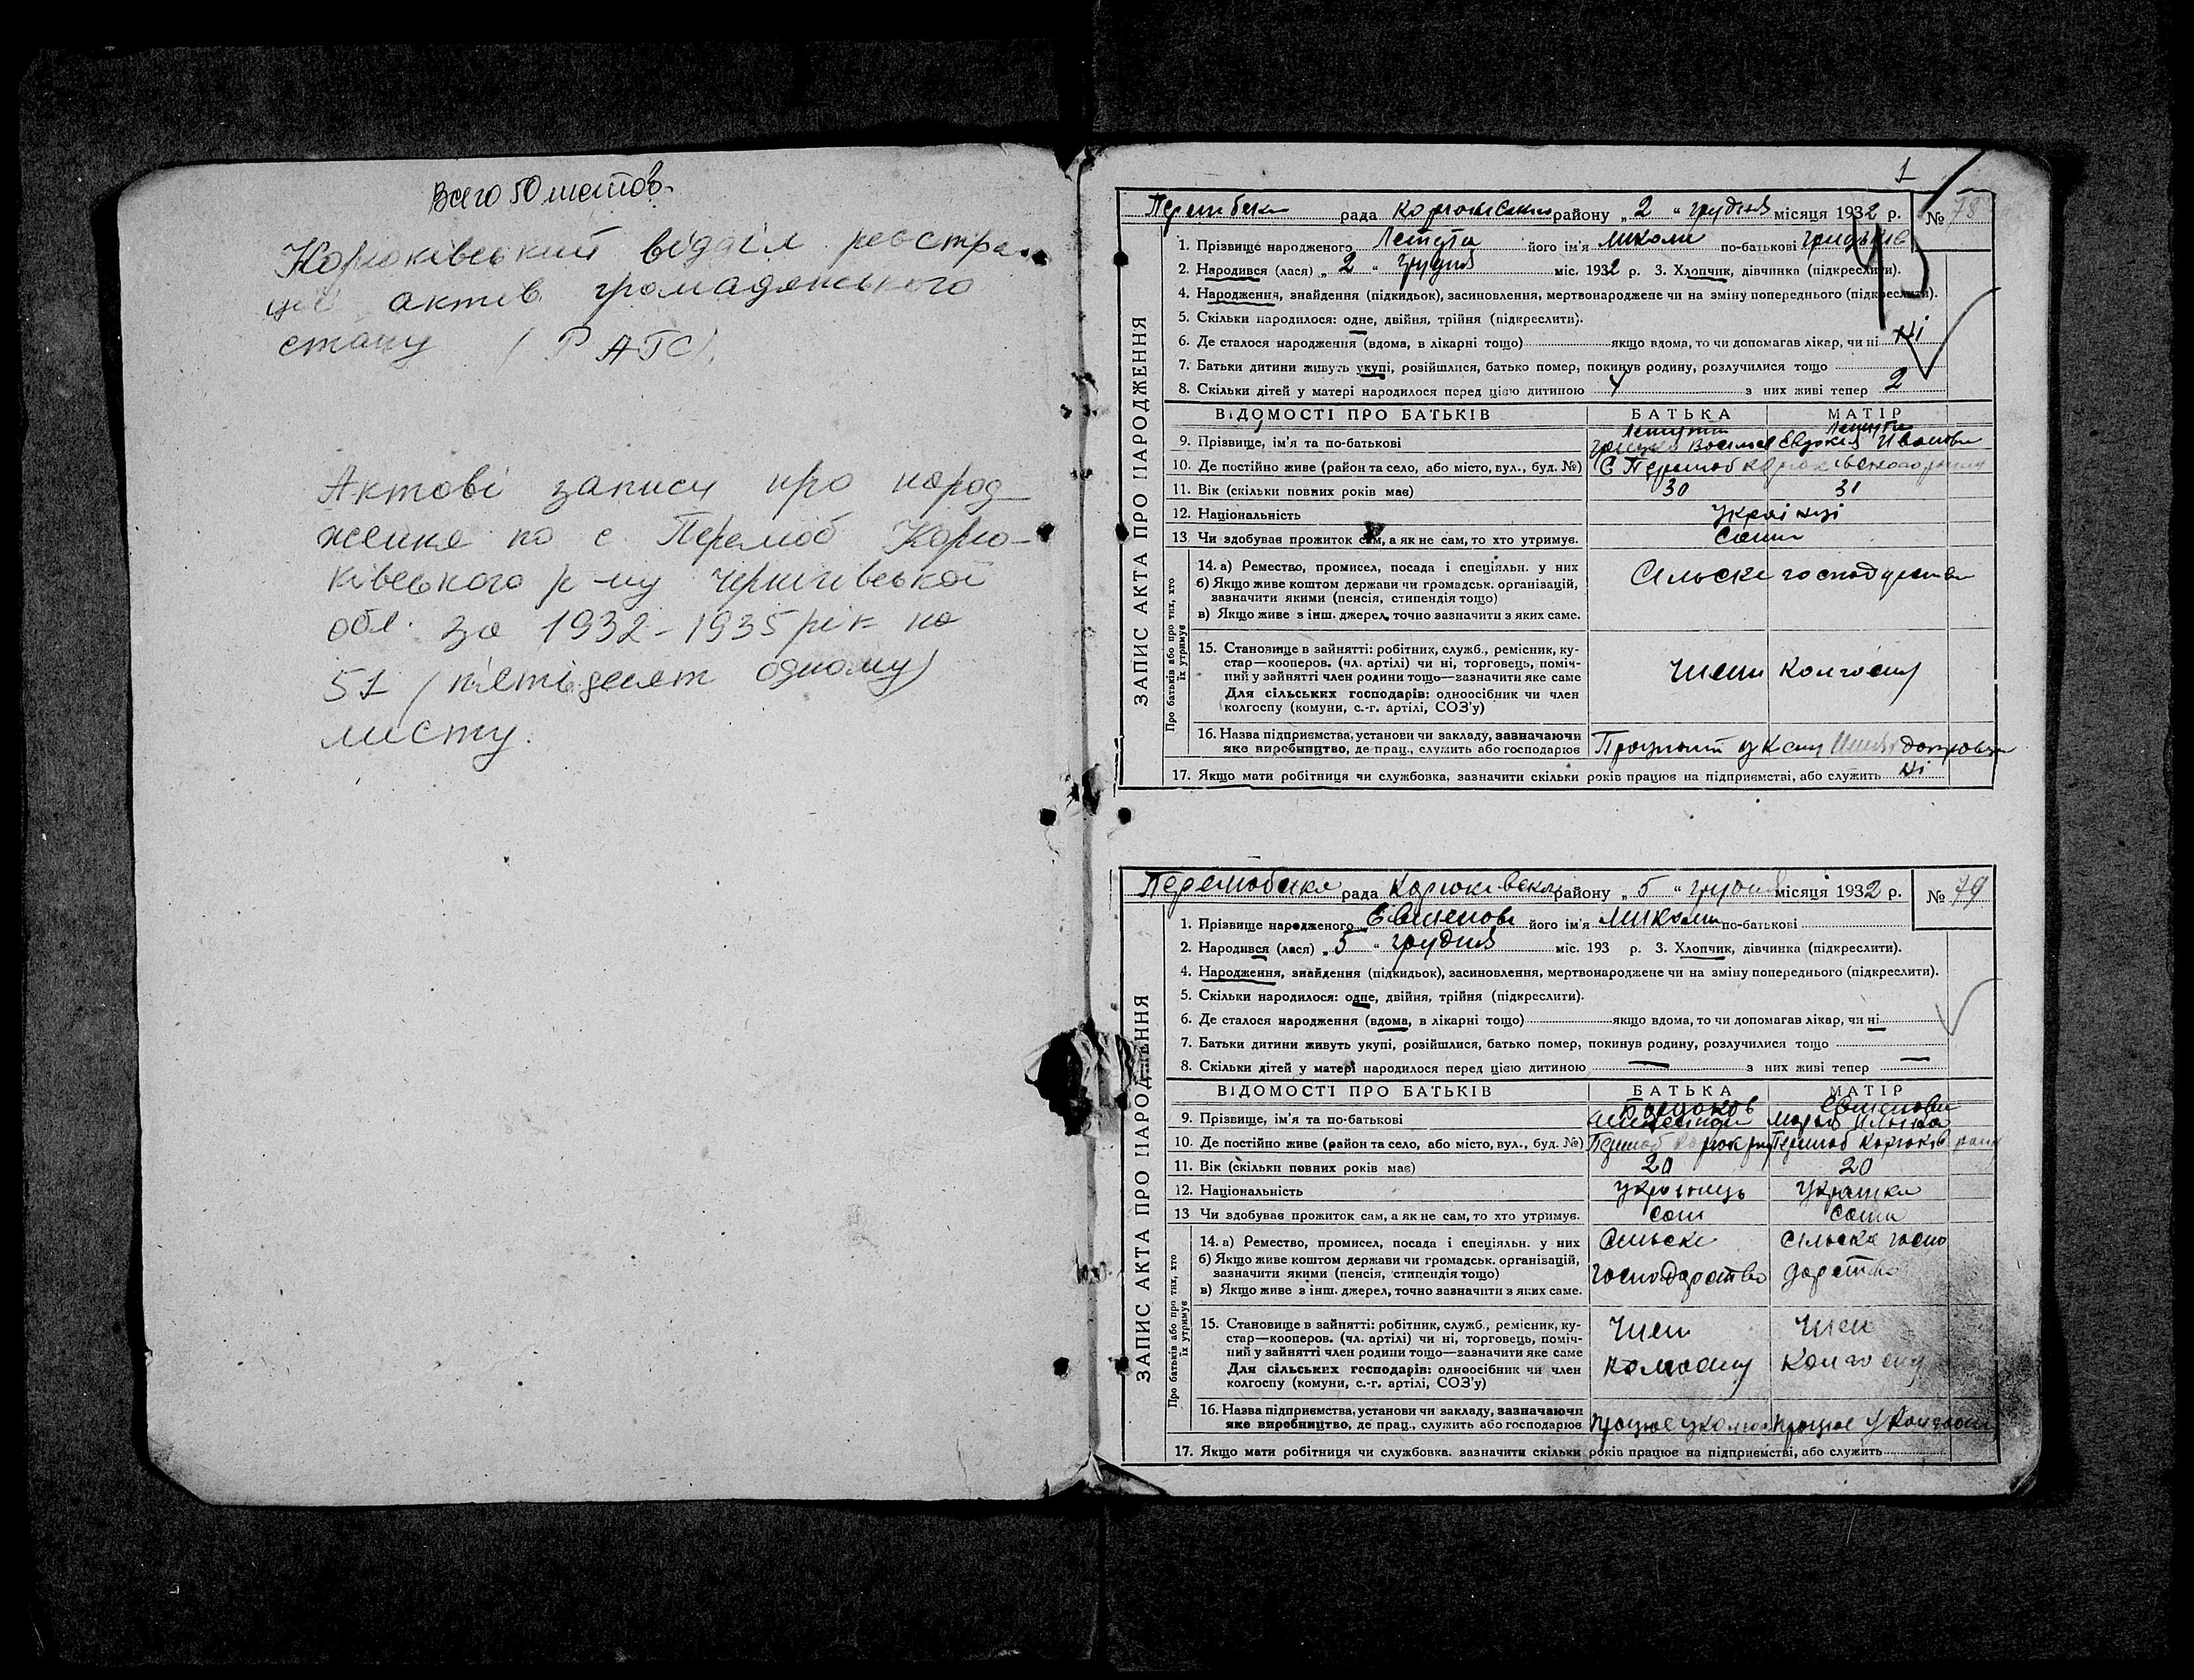 Всего 50 листов.
Корюківський відділ реєстра-
ції актів громадянського
стану (РАГС).
Актові записи про народ-
ження по с. Перелюб Корю-
ківського р-ну Чернігівської
обл. за 1932-1935 рік на
51 (п'ятідесят одному)
листу.
1
рада району „2" грудня місяця 1932 р. № 78
1. Прізвище народженого його ім'я Микола по-батькові
2. Народився (лася) „2" грудня міс. 1932 р. 3. Хлопчик, дівчинка (підкреслити).
4. Народження, знайдення (підкидьок), засиновлення, мертвонароджене чи на зміну попереднього (підкреслити).
5. Скільки народилося: одне, двійня, трійня (підкреслити).
6. Де сталося народження (вдома, в лікарні тощо) якщо вдома, то чи допомагав лікар, чи ні ні
7. Батьки дитини живуть укупі, розійшлися, батько помер, покинув родину, розлучилися тощо
8. Скільки дітей у матері народилося перед цією дитиною з них живі тепер 2
ЗАПИС АКТА ПРО НАРОДЖЕННЯ
ВІДОМОСТІ ПРО БАТЬКІВ БАТЬКА МАТІР
9. Прізвище, ім'я та по-батькові Евдокія
10. Де постійно живе (район та село, або місто, вул., буд. №) С Перелюб Корюківського району
11. Вік (скільки повних років має) 30 31
12. Національність Українці
13 Чи здобуває прожиток сам, а як не сам, то хто утримує. Сами
Про батьків або про тих, хто їх утримує
14. а) Ремество, промисел, посада і спеціяльн. у них
б) Якщо живе коштом держави чи громадськ. організацій,
зазначити якими (пенсія, стипендія тощо)
в) Якщо живе з інш. джерел, точно зазначити з яких саме.
Сільске господарство
15. Становище в зайнятті: робітник, служб., ремісник, ку-
стар—кооперов. (чл. артілі) чи ні, торговець, поміч-
ний у зайнятті член родини тощо—зазначити яке саме
Для сільських господарів: одноосібник чи член
колгоспу (комуни, с.-г. артілі, СОЗ'у)
Члени колгоспу
16. Назва підприємства, установи чи закладу, зазначаючи
яке виробництво, де прац., служить або господарює
17. Якщо мати робітниця чи службовка, зазначити скільки років працює на підприємстві, або служить ні
рада району „5" грудня місяця 1932 р. № 79
1. Прізвище народженого його ім'я Микола по-батькові
2. Народився (лася) „5" грудня міс. 193 р. 3. Хлопчик, дівчинка (підкреслити).
4. Народження, знайдення (підкидьок), засиновлення, мертвонароджене чи на зміну попереднього (підкреслити).
5. Скільки народилося: одне, двійня, трійня (підкреслити).
6. Де сталося народження (вдома, в лікарні тощо) якщо вдома, то чи допомагав лікар, чи ні
7. Батьки дитини живуть укупі, розійшлися, батько помер, покинув родину, розлучилися тощо
8. Скільки дітей у матері народилося перед цією дитиною — з них живі тепер —
ЗАПИС АКТА ПРО НАРОДЖЕННЯ
ВІДОМОСТІ ПРО БАТЬКІВ БАТЬКА МАТІР
9. Прізвище, ім'я та по-батькові
10. Де постійно живе (район та село, або місто, вул., буд. №) Перелюб Перелюб
11. Вік (скільки повних років має) 20 20
12. Національність українець Українка
13 Чи здобуває прожиток сам, а як не сам, то хто утримує. Сам Сама
Про батьків або про тих, хто їх утримує
14. а) Ремество, промисел, посада і спеціяльн. у них
б) Якщо живе коштом держави чи громадськ. організацій,
зазначити якими (пенсія, стипендія тощо)
в) Якщо живе з інш. джерел, точно зазначити з яких саме.
Сільске Сільске госпо
господарство дарство
15. Становище в зайнятті: робітник, служб., ремісник, ку-
стар—кооперов. (чл. артілі) чи ні, торговець, поміч-
ний у зайнятті член родини тощо—зазначити яке саме
Для сільських господарів: одноосібник чи член
колгоспу (комуни, с.-г. артілі, СОЗ'у)
Член Член
колгоспу колгоспу
16. Назва підприємства, установи чи закладу, зазначаючи
яке виробництво, де прац., служить або господарює працює у працює у
17. Якщо мати робітниця чи службовка, зазначити скільки років працює на підприємстві, або служить